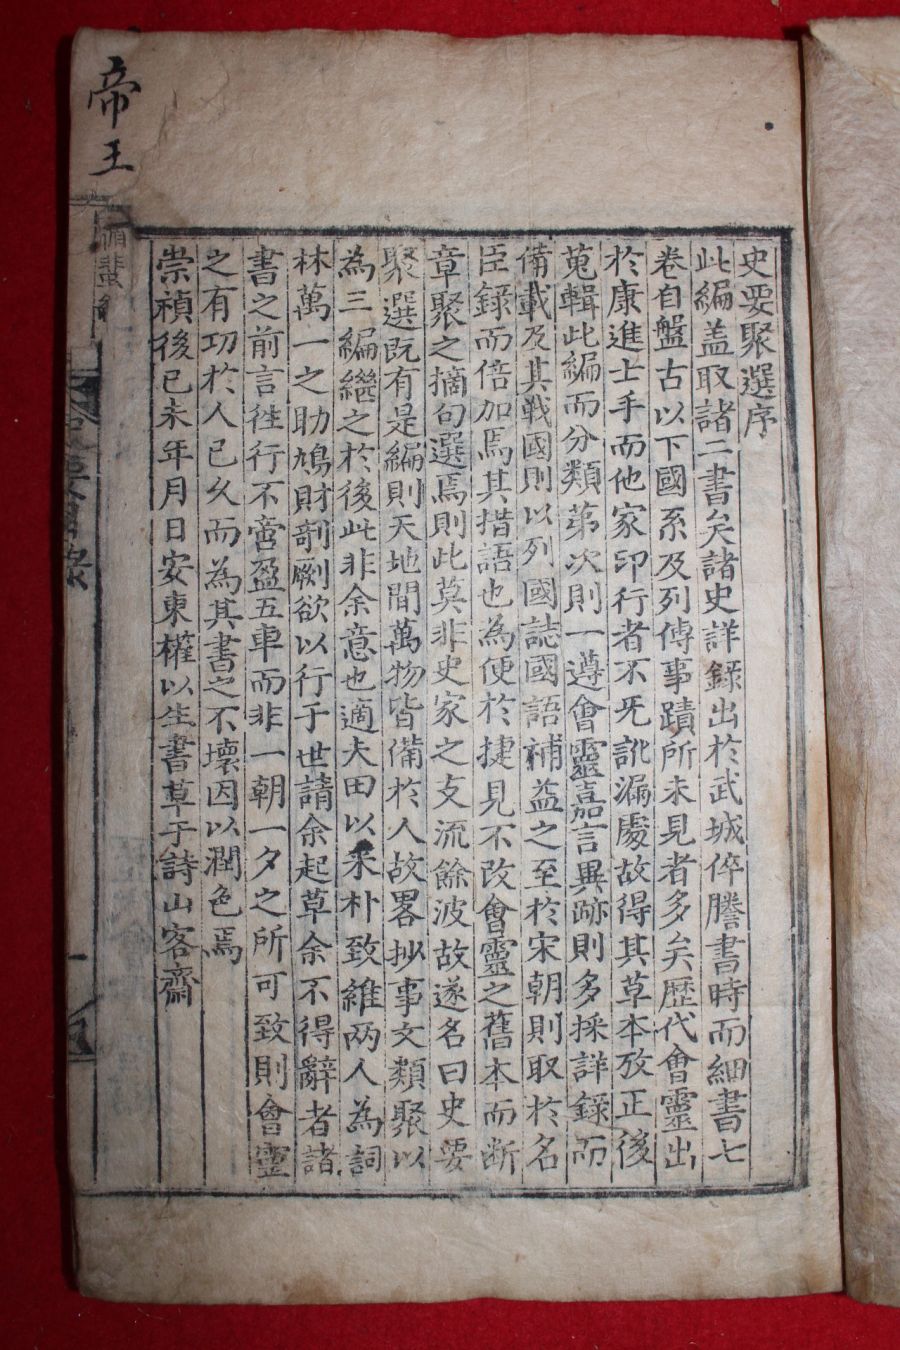 史要聚選序
此編盖取諸二書矣諸史詳錄出於武城倅謄書時而細書七
卷自盤古以下國系及列傳事蹟所未見者多矣歷代會靈出
於康進士手而他家印行者不旡訛漏處故得其草本攷正後
蒐輯此編而分類第次則一遵會靈嘉言異跡則多採詳錄而
備載及其戰國則以列國誌國語補益之至於宋朝則取於名
臣錄而倍加焉其措語也為便於捷見不改會靈之舊本而断
章聚之摘句選焉則此莫非史家之支流餘波故遂名曰史要
聚選旣有是編則天地間萬物皆備於人故畧抄事文類聚以
為三編繼之於後此非余意也適夫田以采朴致維两人為詞
林萬一之助鳩財剞劂欲以行于世請余起草余不得辭者諸
書之前言徃行不啻盈五車而非一朝一夕之所可致則會靈
之有功於人已久而為其書之不壞因以潤色焉
崇禎後己未年月日安東權以生書草于詩山客齋
帝王